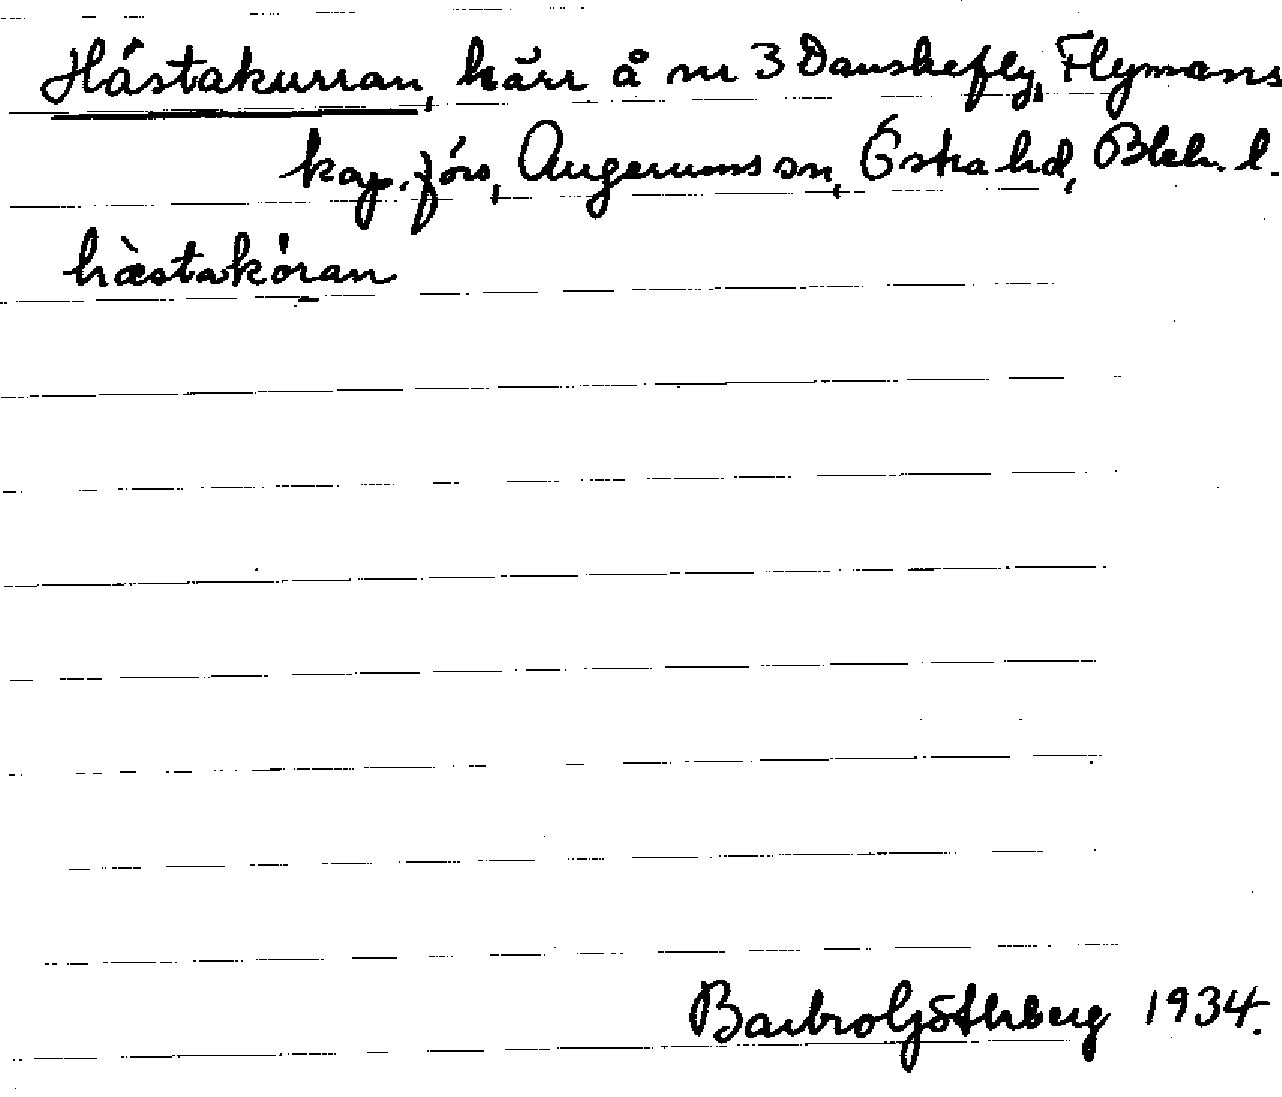 Hästakurran, kärr å nr 3 Danskefly, Flymens
kap. förs, Augerums sn, Östra hd, Blek. l.
hæ̀stakóran
Barbro Göthberg 1934.